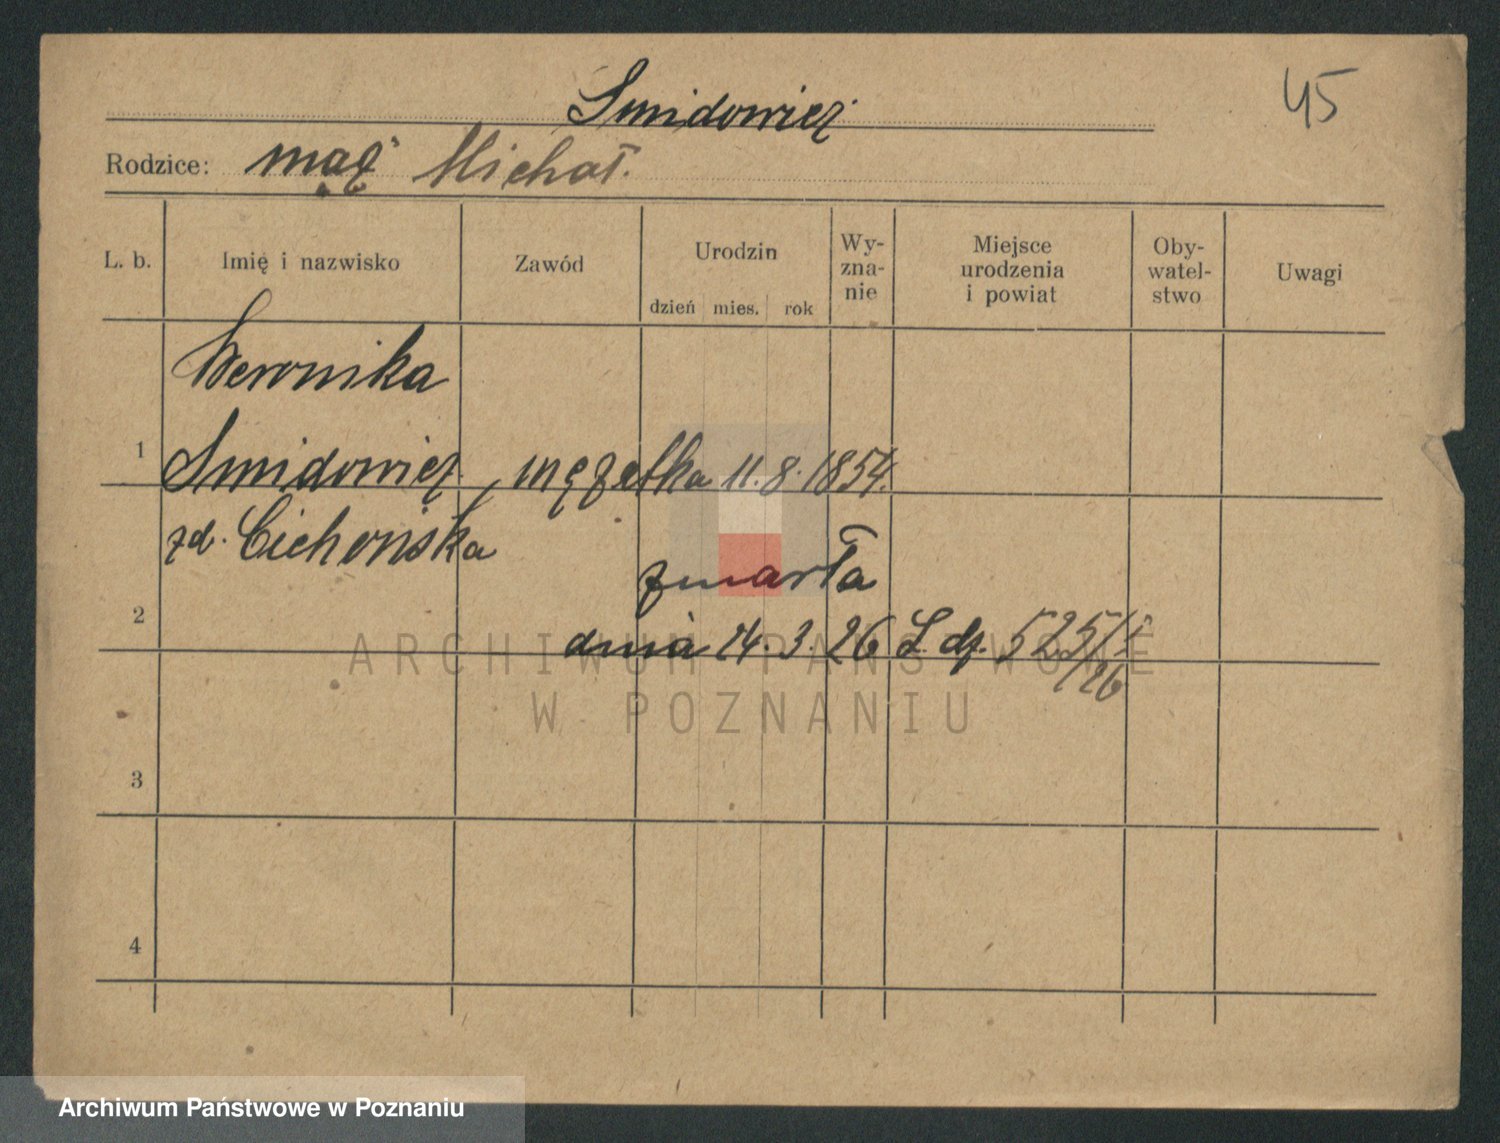 45
Smidowicz
Rodzice: mąż Michał.
L. b. Imię i nazwisko Zawód Urodzin dzień mies. rok Wy-zna-nie Miejsce urodzenia i powiat Oby-watel-stwo Uwagi
Weronika
1 Smidowicz, mężatka 11.8.1854.
zd. Cichońska
zmarła
2 dnia 14.3.26 L. dz. 525/I
/26
ARCHIWUM PAŃSTWOWE
W POZNANIU
3
4
Archiwum Państwowe w Poznaniu